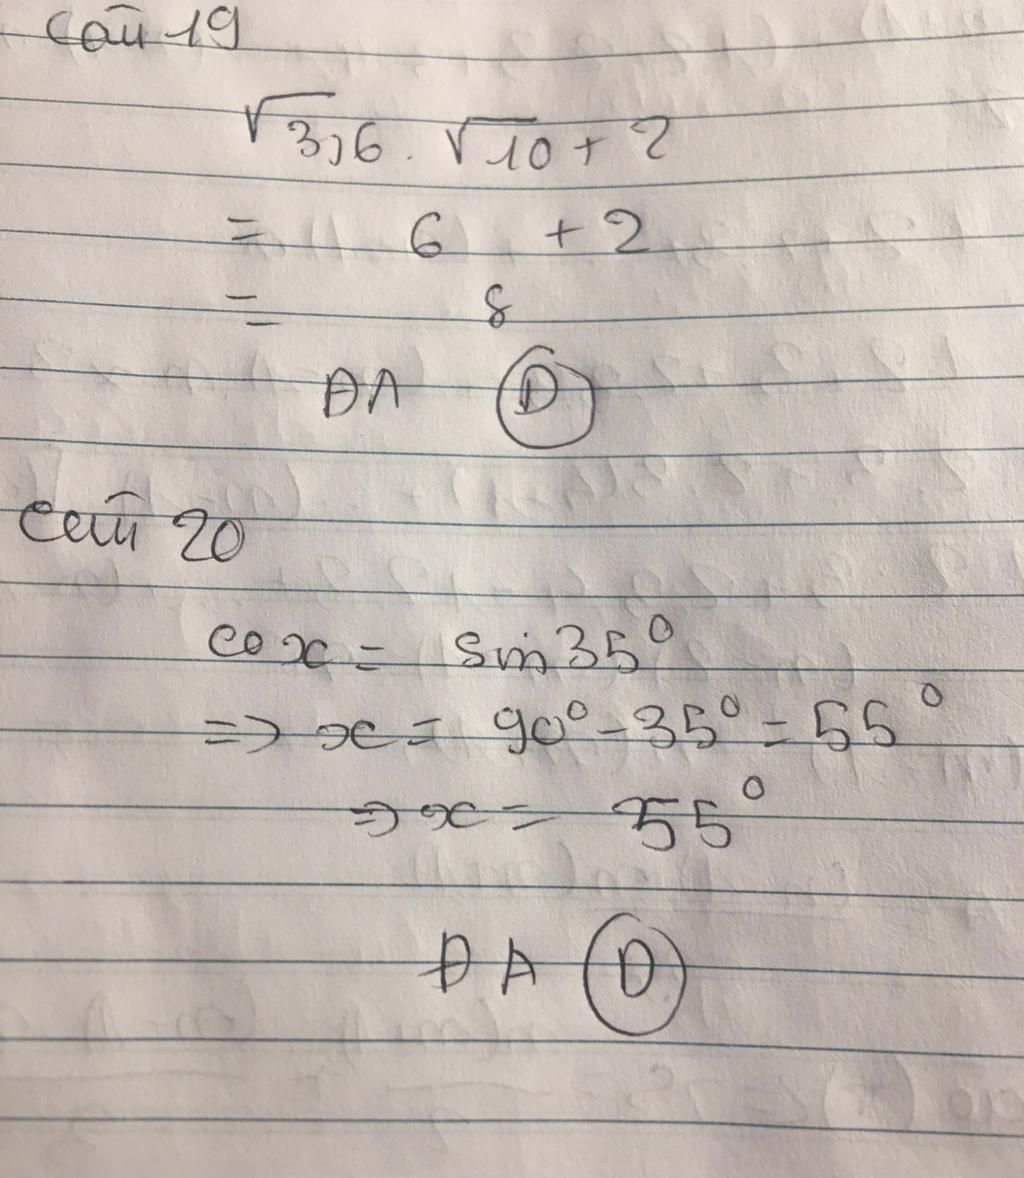 Câu 19
√3,6 . √10 + 2
= 6 + 2
= 8
ĐA D
Câu 20
co x = sin 35°
=> x = 90° - 35° = 55°
=> x = 55°
ĐA D